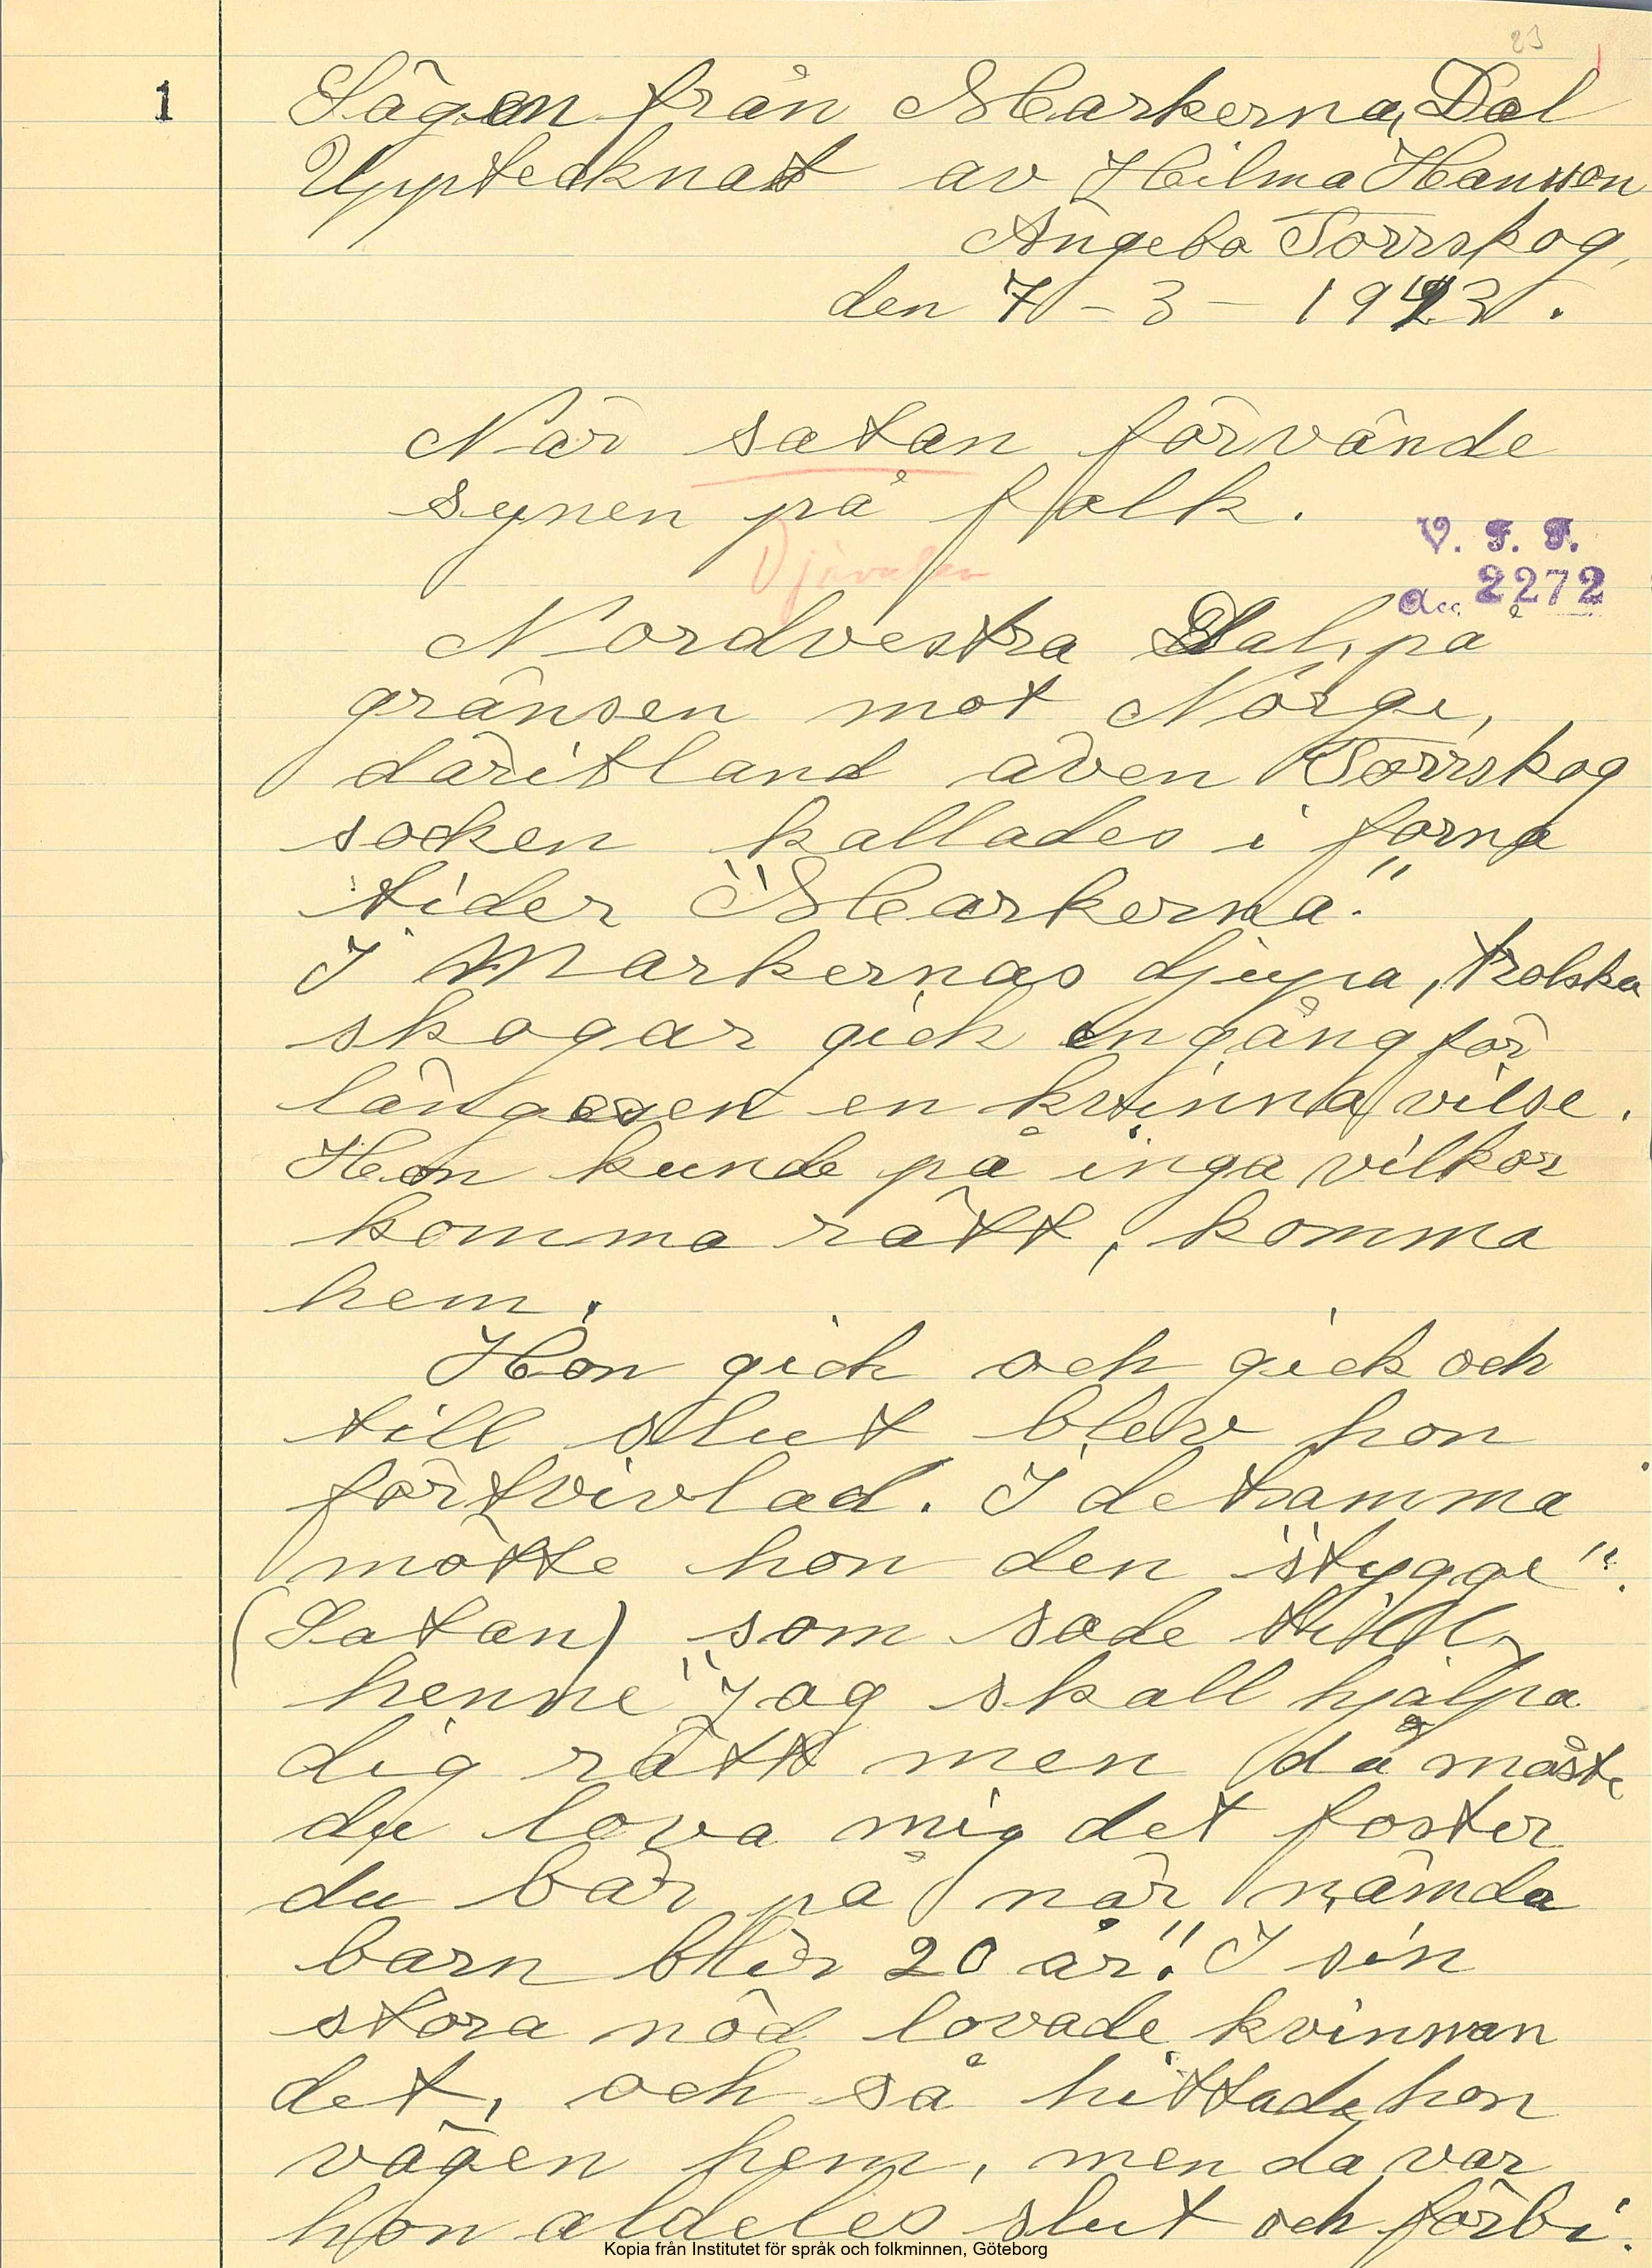 23
1
Sägen från Markerna, Dal
Upptecknat av Hilma Hansson
Ängebo Torrskog,
den 7 - 3 -
När satan förvände
synen på folk.
Djävulen
V. F. F.
acc. 2272
Nordvestra Dal, på
gränsen mot Norge,
däribland även Torrskog
socken kallades i forna
tider "Markerna".
I Markernas djupa, trolska
skogar gick en gång för
längesen en kvinna vilse.
Hon kunde på inga vilkor
komma rätt, komma
hem.
Hon gick och gick och
till slut blev hon
förtvivlad. I detsamma
mötte hon den "stygge".
(Satan) som sade till
henne "Jag skall hjälpa
dig rätt men då måste
du lova mig det foster
du bär på när nämda
barn blir 20 år". I sin
stora nöd lovade kvinnan
det, och så hittade hon
vägen hem, men då var
hon aldeles slut och förbi.
Kopia från Institutet för språk och folkminnen, Göteborg